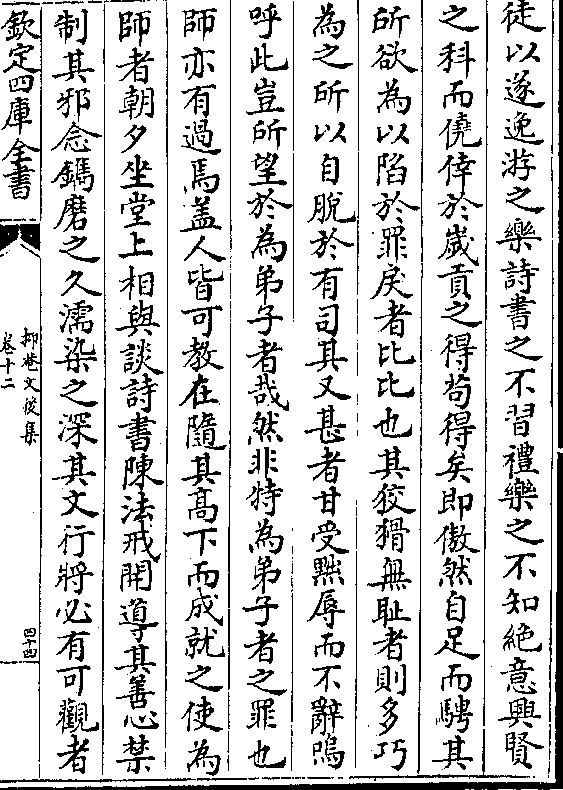 徒以遂逸游之樂詩書之不習禮樂之不知絶意興賢
之科而僥倖於嵗貢之得苟得矣即傲然自足而騁其
所欲為以陷於罪戾者比比也其狡猾無耻者則多巧
為之所以自脫於有司其又甚者甘受黜辱而不辭嗚
呼此豈所望於為弟子者哉然非特為弟子者之罪也
師亦有過焉盖人皆可教在隨其髙下而成就之使為
師者朝夕坐堂上相與談詩書陳法戒開導其善心禁
制其邪念鐫磨之久濡染之深其文行將必有可觀者
欽定四庫全書
抑菴文後集
卷十二
四十四